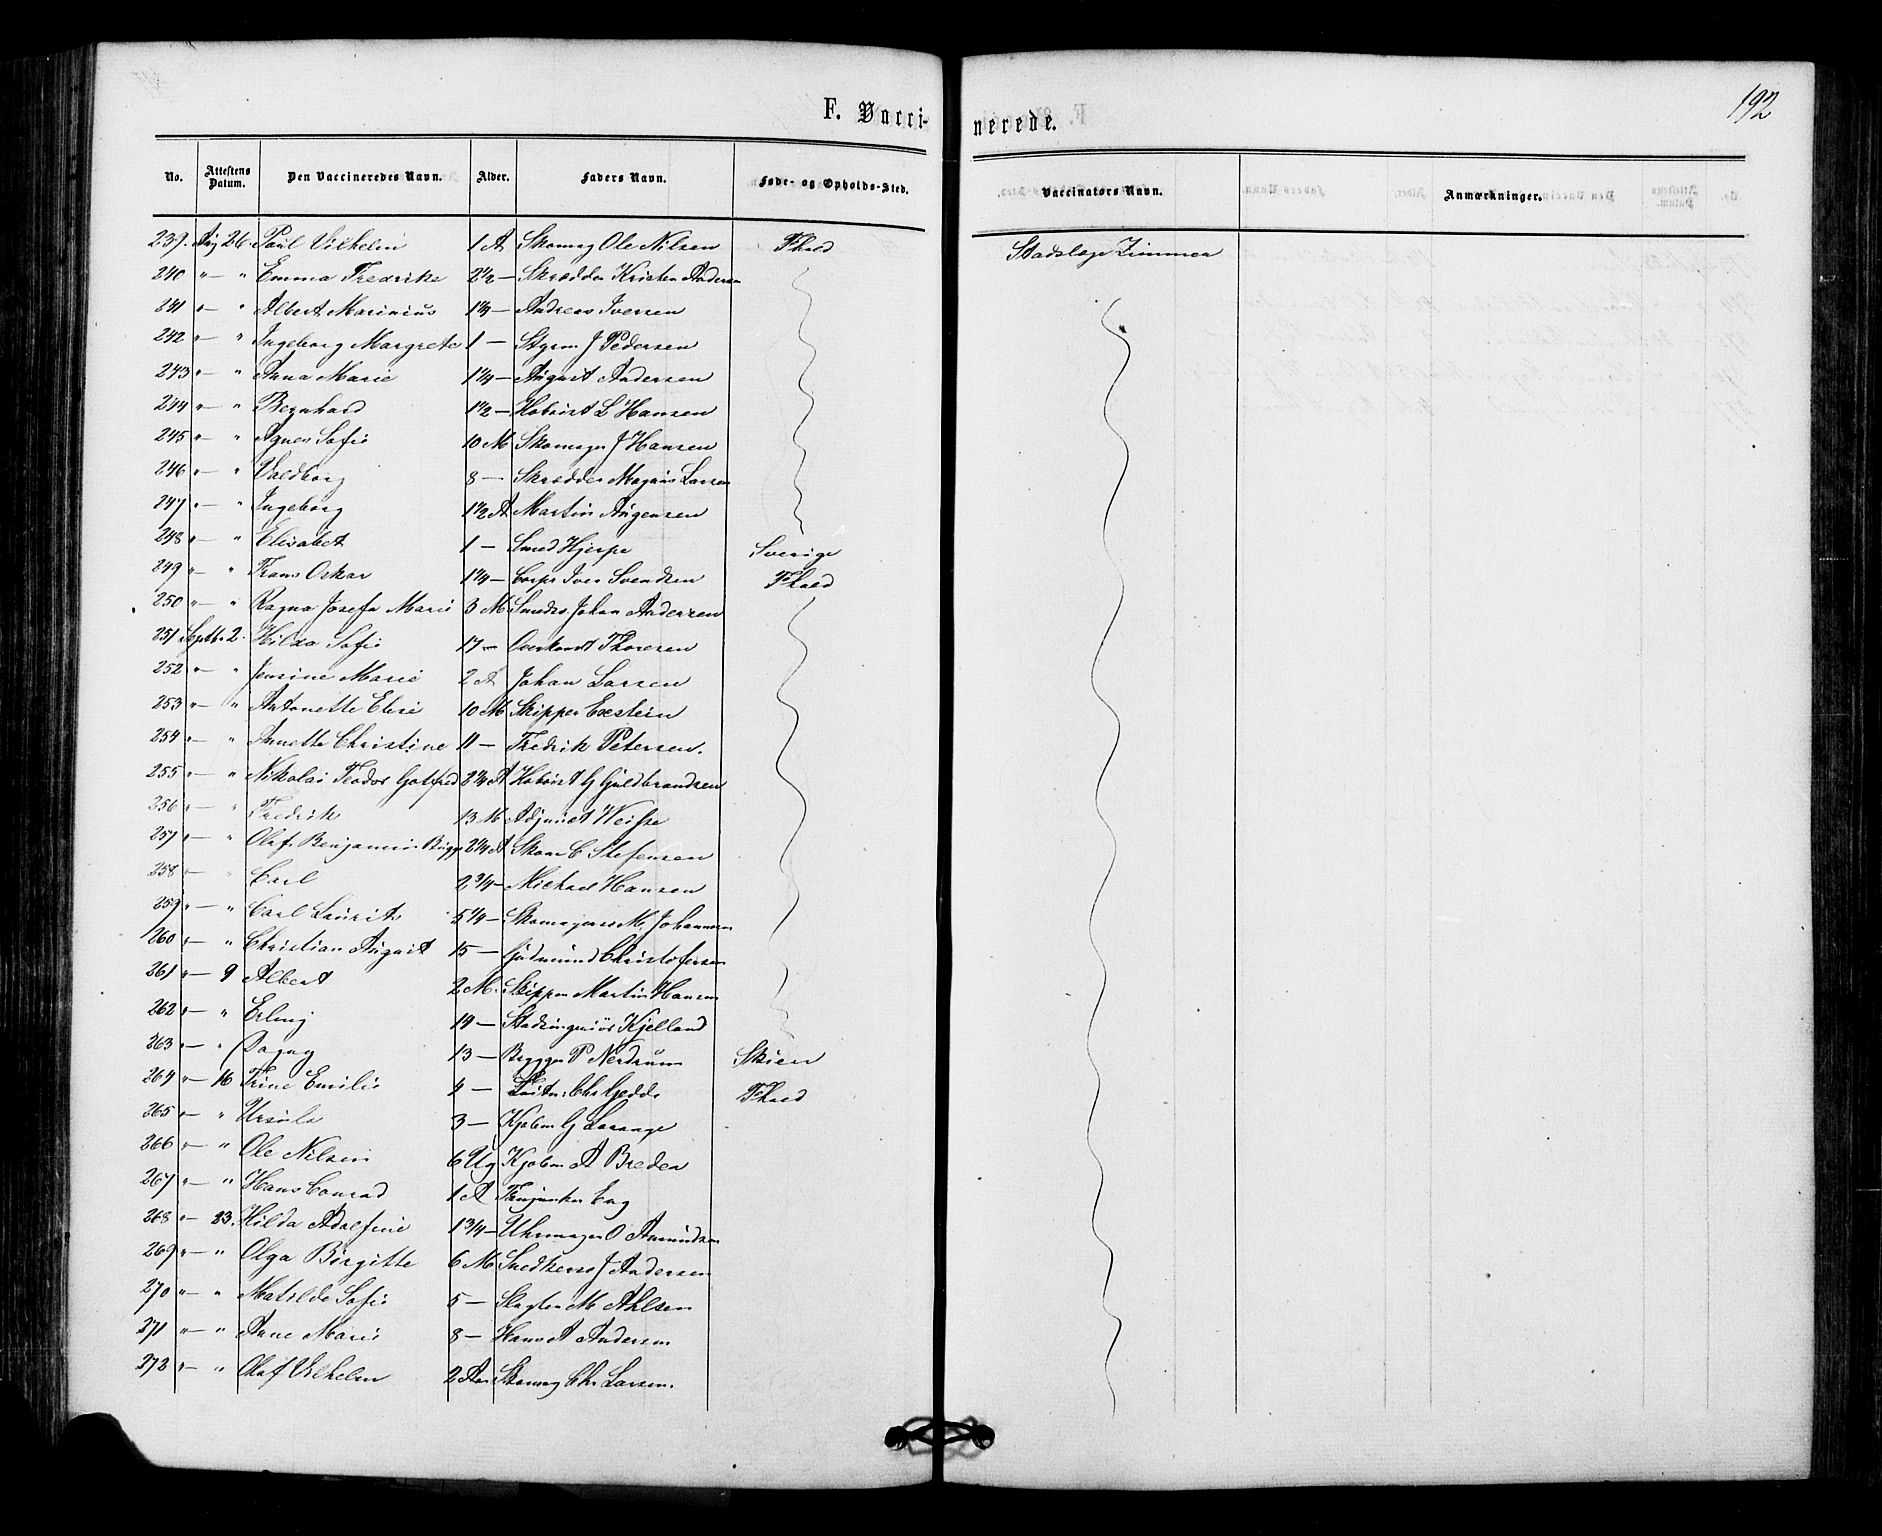 192
F. Vacci- nerede.
No. Attestens Datum. Den Vaccineredes Navn. Alder. Faders Navn. Føde- og Opholds-Sted. Vaccinators Navn. Anmærkninger.
239. Aug 26. Paul Vilhelm 1 A Skomag Ole Nilsen Fhald Stadslæge Zimmer
240 " — " Emma Fredrike 2 1/2 — Skrædder Kristen Andersen
241 " — " Albert Marinius 1 1/4 — Andreas Iversen
242 " — " Ingeborg Margrete 1 — Styrm J Pedersen
243 " — " Anna Marie 1 1/4 — August Andersen
244 " — " Bernhard 1 1/2 — Hoboist L Hansen
245 " — " Agnes Sofie 10 M Skomager J Hansen
246 " — " Valdborg 8 — Skrædder Magnus Larsen
247 " — " Ingeborg 1 1/2 A Martin Jürgensen
248 " — " Elisabet 1 — Smed Hjerpe Sverige
249 " — " Frans Oskar 1 1/4 — Corps Iver Svendsen Fhald
250 " — " Ragna Josefa Marie 3 M Smedsv Johan Andersen
251 Septbr. 2. Hilda Sofie 17 — Overkondt Thoresen
252 " — " Jensine Marie 2 A Johan Larsen
253 " — " Antonette Elise 10 M Skipper Exstein
254 " — " Annette Christine 11 — Fredrik Petersen.
255 " — " Nikolai Teodor Gotfred 2 1/4 A Hoboist G Guldbrandsen
256 " — " Fredrik 13 M Adjunct Weisse
257 " — " Olaf Benjamin Bugge 2 1/4 A Skom C Stefensen
258 " Carl 2 3/4 — Michael Hansen
259 " — " Carl Laurits 5 1/4 — Skomagersv M. Johannesen
260 " — " Christian August 15 — Gudmund Christofersen
261 " — 9 Albert 2 M. Skipper Martin Hansen
262 " — " Erling 19 — Stadsingeniør Kjelland
263 " — " Dagny 13 — Brygger P Nerdrum Skien
264 " — 16 Trine Emilie 4 — Løitn: Chr Gedde Fhald
265 " — " Ursula 3 — Kjøbm G Lorange
266 " — " Ole Nilsen 6 Ug Kjøbm A Breder
267 " — " Hans Conrad 1 A Fanejunker Eng
268 " — 23. Hilda Adolfine 1 3/4 — Uhrmager O Amundsen
269 " — " Olga Birgitte 6 M Snedkersv J Andersen
270 " — " Matilde Sofie 5 — Slagter M Ahlsen
271 " — " Anne Marie 8 — Hans A Andersen
272 " — " Olaf Vilhelm 2 Aar Skomag Chr Larsen.